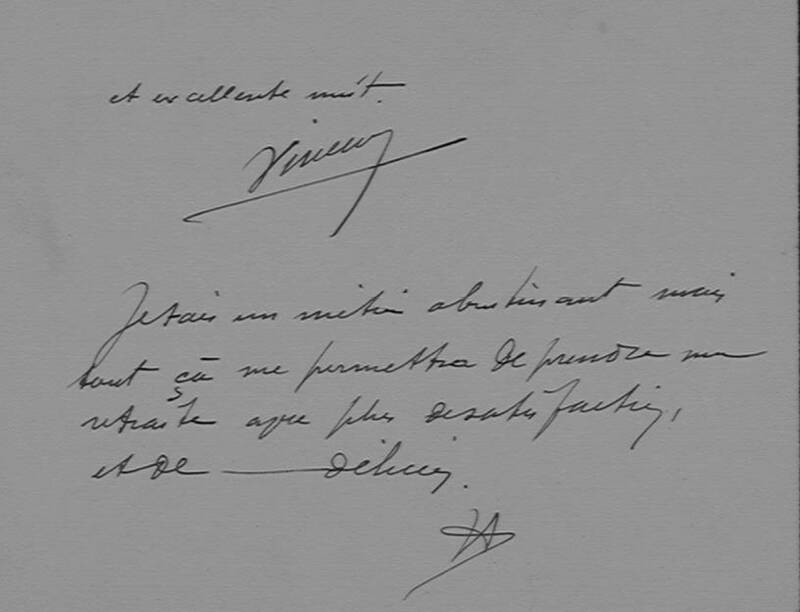 et excellente nuit.
Vincent
Je fais un métier abrutissant mais
tout ça me permettra de prendre ma
retraite avec plus de satisfaction,
et de — délices.